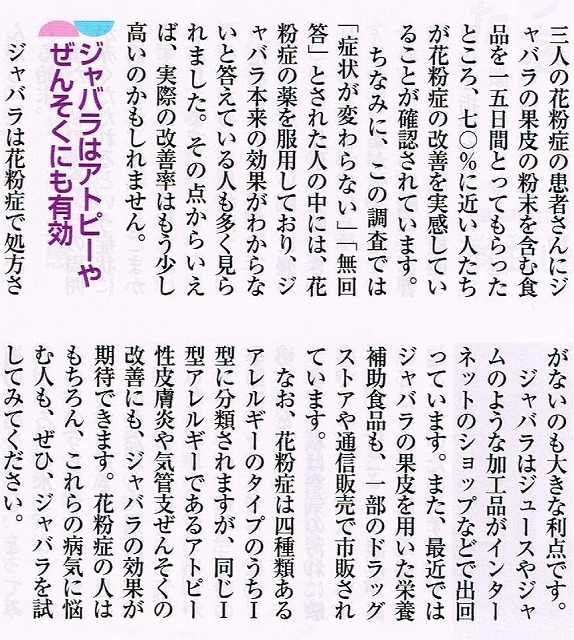 三人の花粉症の患者さんにジ
ャバラの果皮の粉末を含む食
品を一五日間とってもらった
ところ、七〇％に近い人たち
が花粉症の改善を実感してい
ることが確認されています。
ちなみに、この調査では
「症状が変わらない」「無回
答」とされた人の中には、花
粉症の薬を服用しており、ジ
ャバラ本来の効果がわからな
いと答えている人も多く見ら
れました。その点からいえ
ば、実際の改善率はもう少し
高いのかもしれません。
ジャバラはアトピーや
ぜんそくにも有効
ジャバラは花粉症で処方さ
がないのも大きな利点です。
ジャバラはジュースやジャ
ムのような加工品がインター
ネットのショップなどで出回
っています。また、最近では
ジャバラの果皮を用いた栄養
補助食品も、一部のドラッグ
ストアや通信販売で市販され
ています。
なお、花粉症は四種類ある
アレルギーのタイプのうちⅠ
型に分類されますが、同じⅠ
型アレルギーであるアトピー
性皮膚炎や気管支ぜんそくの
改善にも、ジャバラの効果が
期待できます。花粉症の人は
もちろん、これらの病気に悩
む人も、ぜひ、ジャバラを試
してみてください。